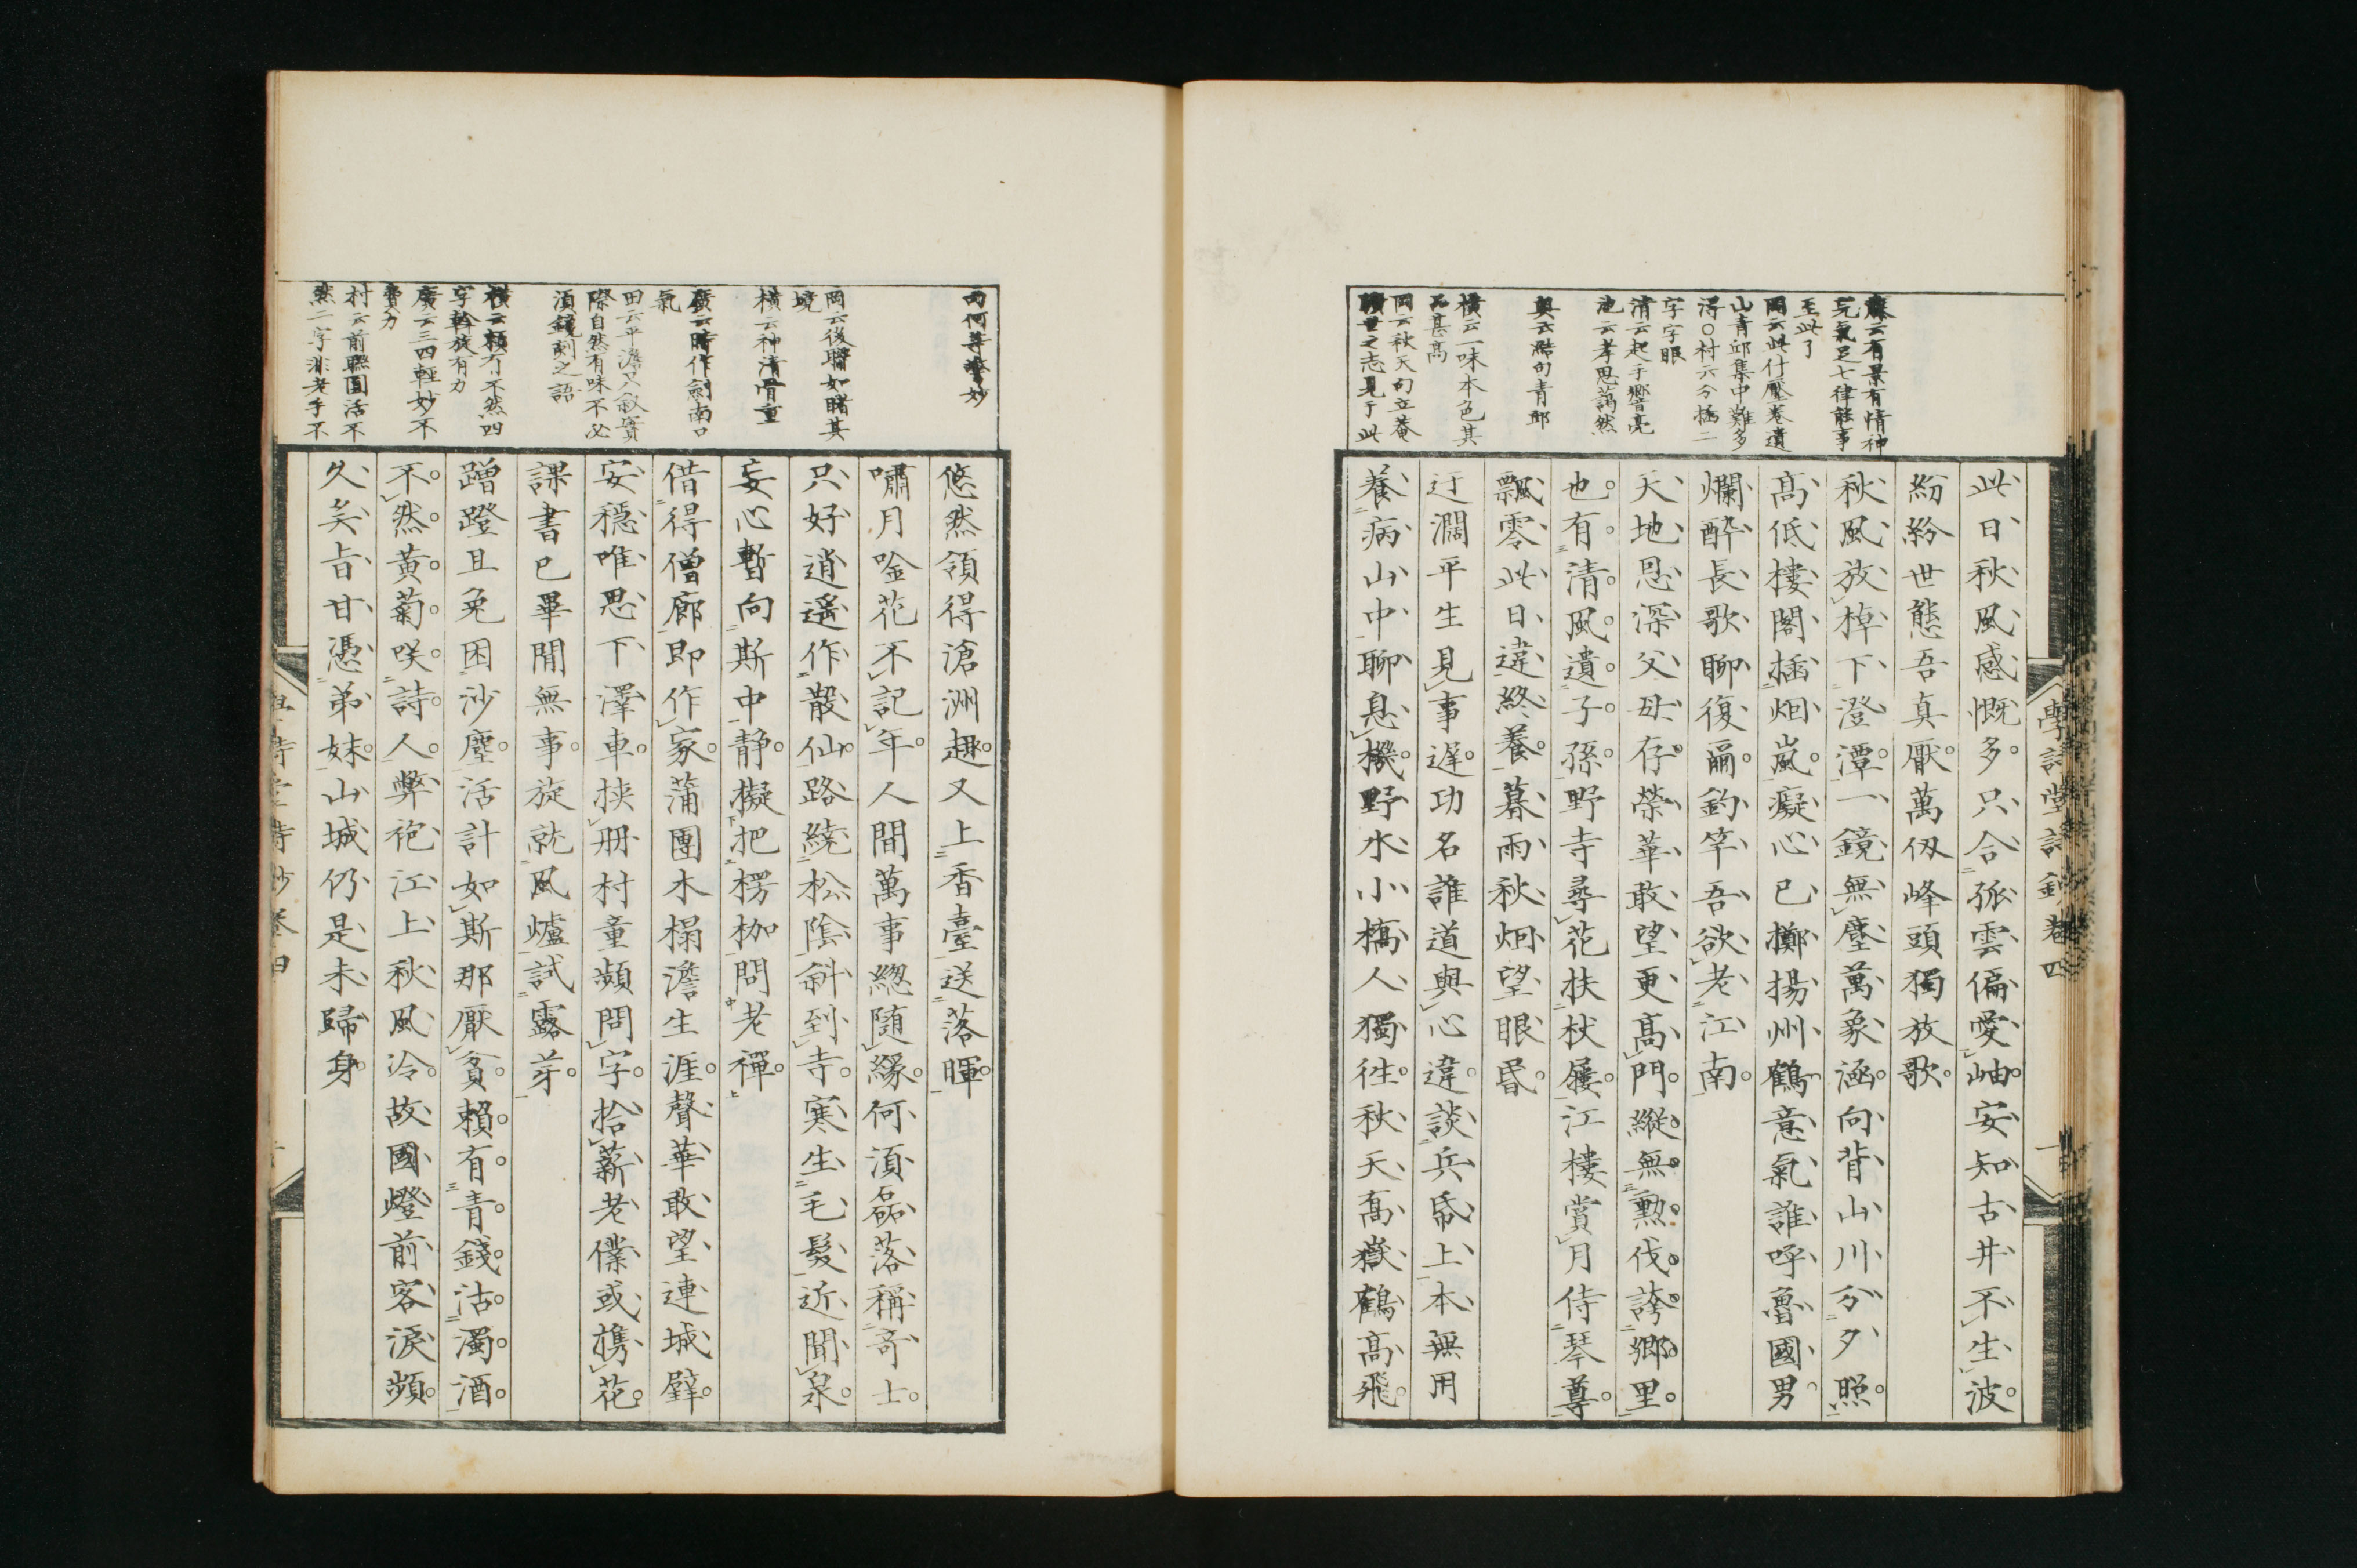 此日秋風感慨多只合孤雲偏愛岫安知古井不生波
紛紛世態吾真厭萬仭峰頭獨放歌
秋風放棹下澄潭一鏡無塵萬象涵向背山川分夕照
高低樓閣插烟嵐癡心已擲揚州鶴意氣誰呼魯國男
爛醉長歌聊復爾釣竿吾欲老江南
天地恩深父母存榮華敢望更高門縱無勲伐誇鄉里
也有清風遺子孫野寺尋花扶杖屨江樓賞月侍琴尊
飄零此日違終養暮雨秋烟望眼昏
迂濶平生見事遲功名誰道與心違談兵帋上本無用
養病山中聊息機野水小橋人獨往秋天高嶽鶴高飛
學詩堂詩鈔卷四
云有景有情神
完氣足七律能事
至此了
岡云此什壓卷遺
山青邱集中難多
得○村云分插二
字字眼
清云起手響亮
池云孝思藹然
奥云結句青邱
橫云一味本色其
品甚高
岡云秋天句立菴
曠世之志見于此
悠然領得滄洲趣又上香臺送落暉
嘯月唫花不記年人間萬事總隨緣何須磊落稱奇士
只好逍遙作散仙路繞松陰斜到寺寒生毛髮近聞泉
妄心暫向斯中静擬把楞枷問老禪
借得僧廊即作家蒲團木榻澹生涯聲華敢望連城璧
安穩唯思下澤車挾冊村童頻問字拾薪老僕或携花
課書已畢閒無事旋就風爐試露芽
蹭蹬且免困沙塵活計如斯那厭貧賴有青錢沽濁酒
不然黃菊咲詩人弊袍江上秋風冷故國燈前客淚頻
久矣旨甘憑弟妹山城仍是未歸身
而何等警妙
岡云後聯如睹其
境
橫云神清骨重
廣云時作劍南口
氣
田云平澹只叙實
際自然有味不必
須鏤刻之語
橫云賴有不然四
字斡旋有力
廣云三四輕妙不
費力
村云前聯圓活不
然二字非老手不